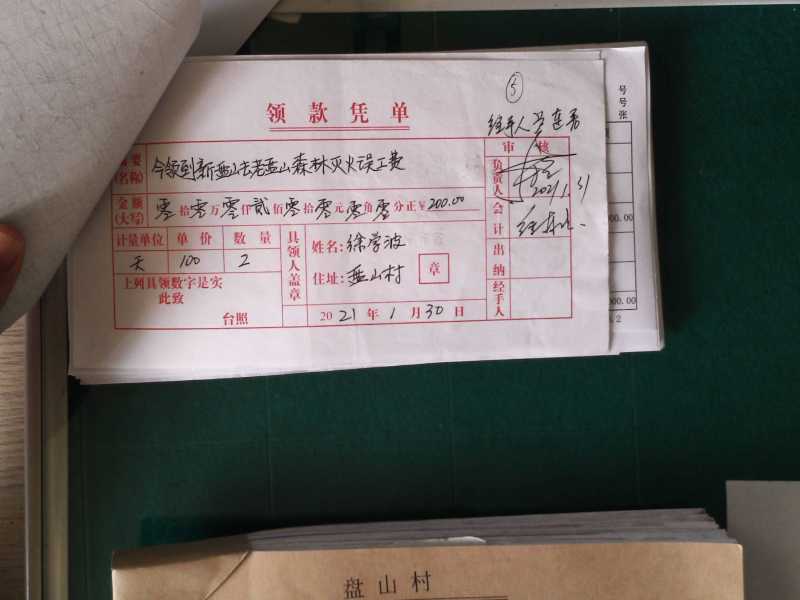 ⑤
领款凭单
经手人
审核
摘要
(名称)
今领到新盘山去老盘山森林灭火误工费
负责人
2021.1.31
金额
(大写)
零拾零万零仟贰佰零拾零元零角零分正¥200.00
会计
计量单位 单价 数量
天 100 2
具领人盖章
姓名:徐学波
住址:盘山村
章
出纳
上列具领数字是实
此致
台照
2021年1月30日
经手人
号
号
张
00.00
00.00
2
盘山村